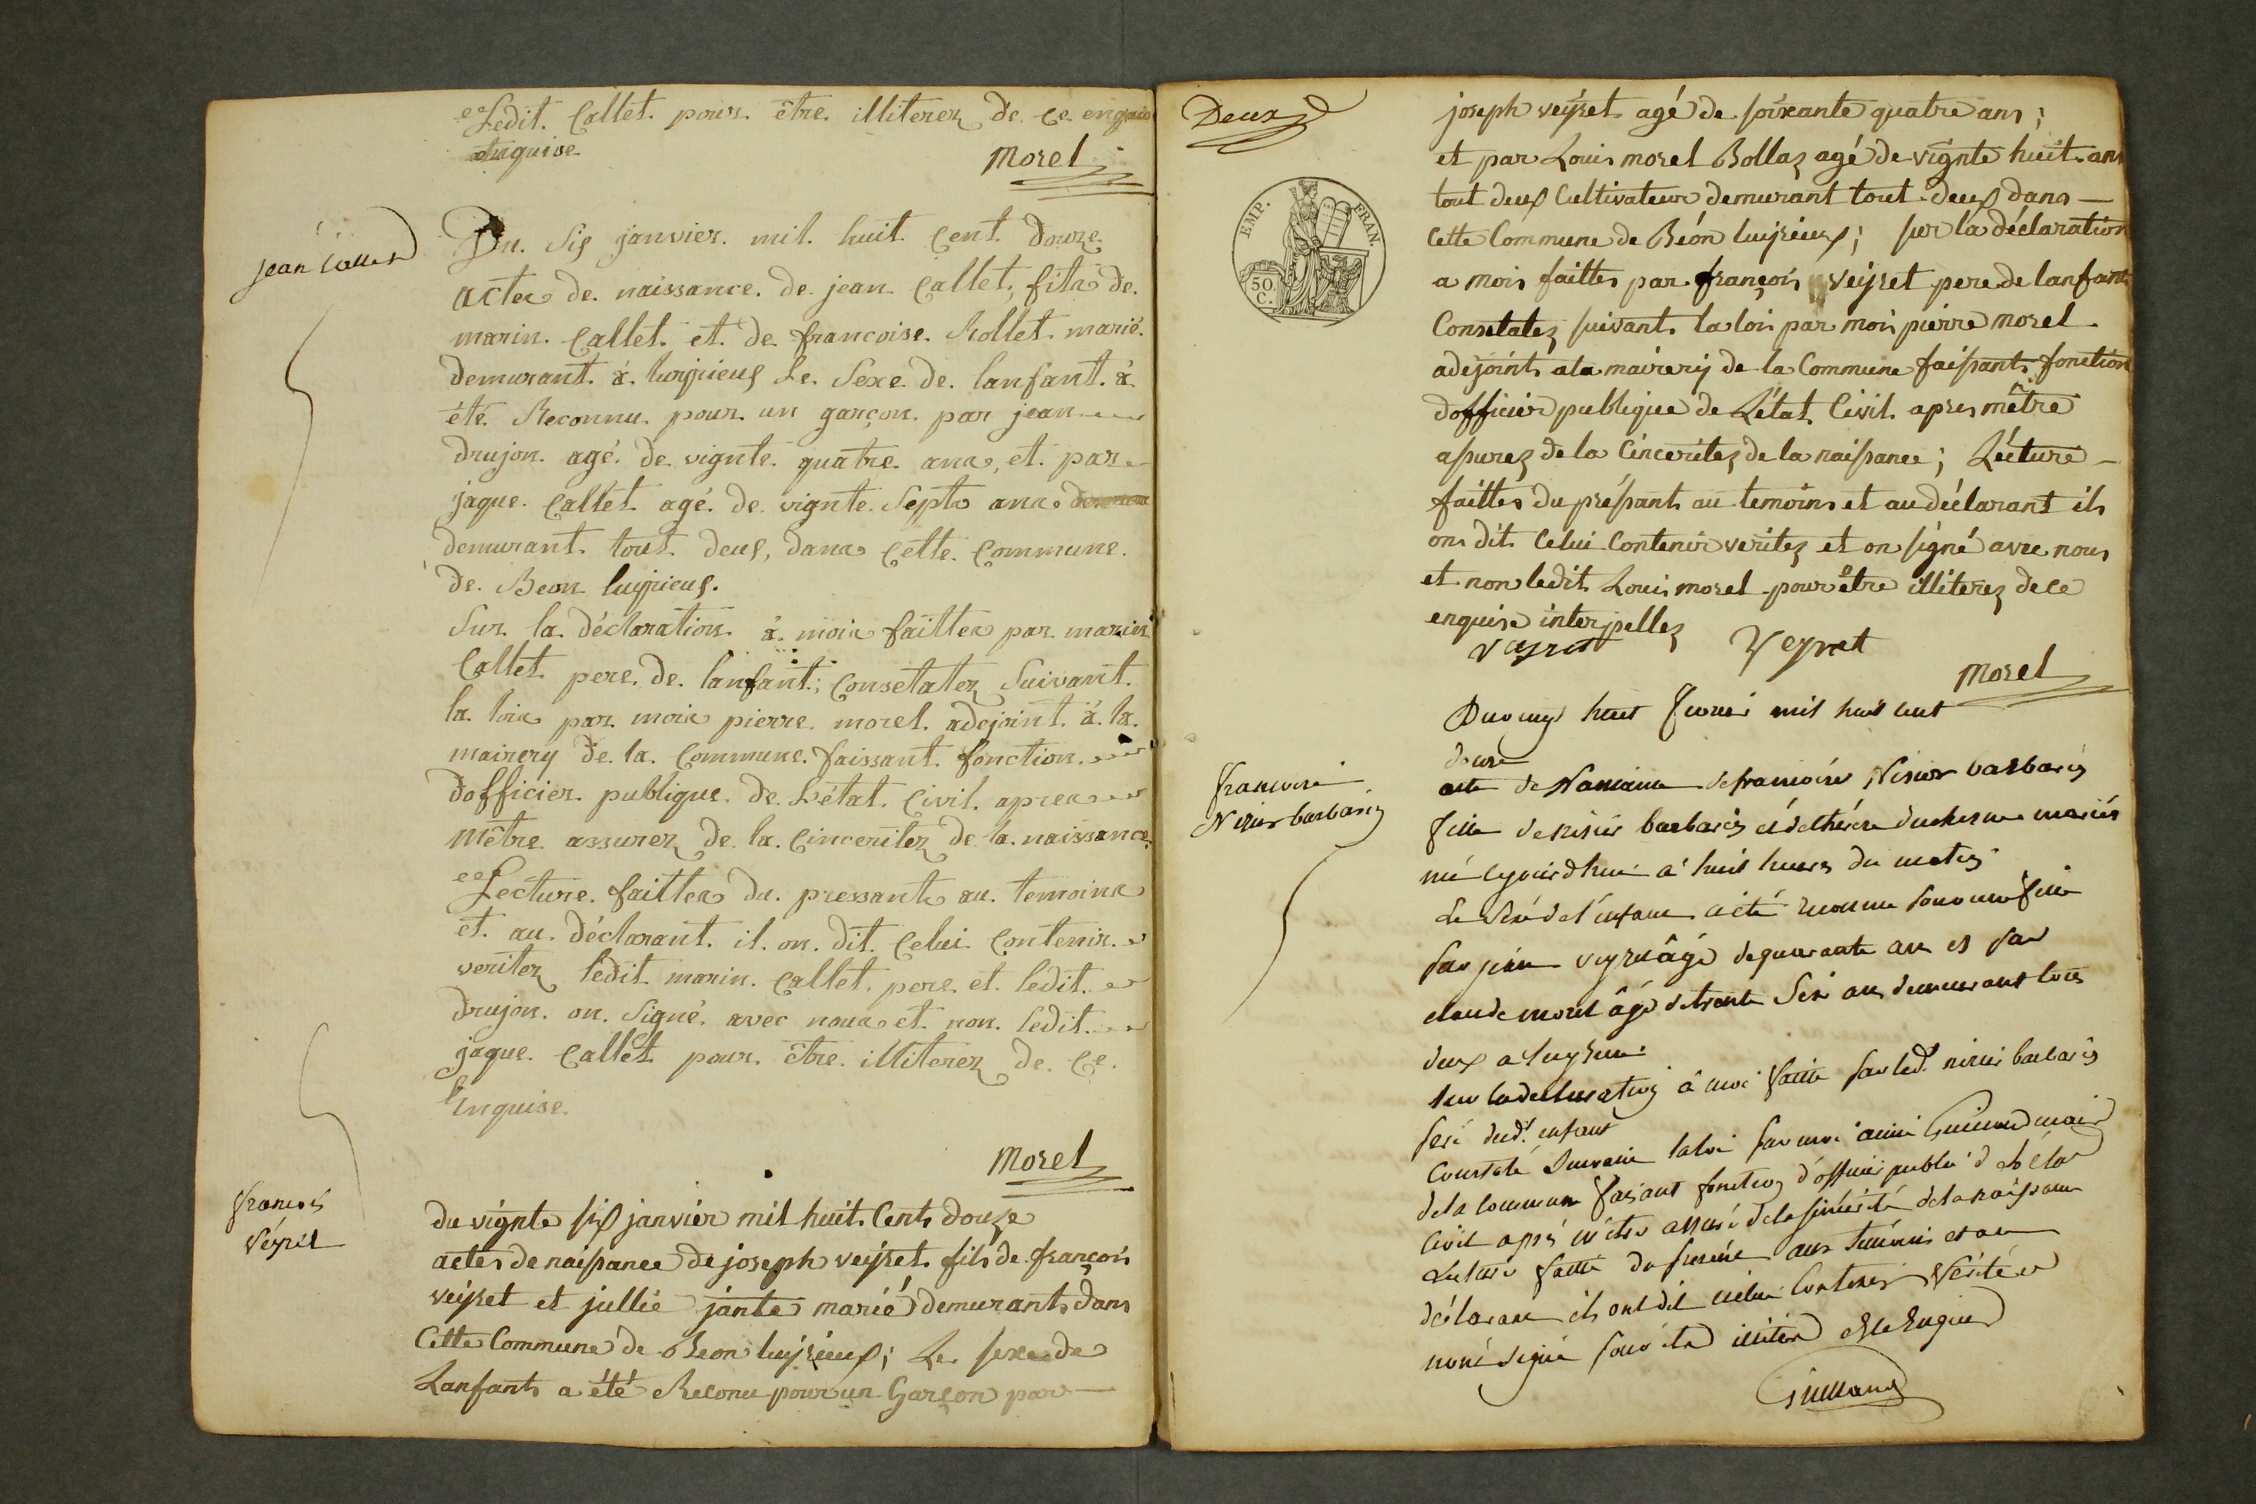 Ledit. Callet. pour. être. illiterez de. ce.
enquise
Morel
jean Callet
Du. Six janvier. mil. huit. Cent. Douze.
actes de. naissance. de. jean. Callet, fils de.
marin. Callet. et. de. francoise. Rollet. marié.
demurant. à. luiyrieux Le. Sexe. de. lanfant. à.
été. Reconnu. pour. un garçon. par jean
drujon. agé. de. vignte. quatre. ans, et. par
jaque. Callet agé. de. vignte. Septs ans.
demurant. tout. deux, dans Cette. Commune.
de. Beon luiyrieux.
Sur. la. déclaration. à. mois faittes par. marin
Callet. pere. de. lanfant; Consetatez Suivant.
la. lois par. mois pierre. morel. adejoint. à. la.
mairery de. la. Commune. faissant. fonction.
dofficier. publique. de. Létat. Civil. apres
mêtre. assurez de. la. Cinceritez de. la. naissance
Lecture. faittes du. pressants au. temoins
et. au. déclarant. il. on. dit. Celui. Contenir.
veritez ledit. marin. Callet. pere. et. lédit.
drujon. on. Signé. avec nous et. non. ledit.
jaque. Callet pour. être. illiterez de. Ce.
Enquise.
Morel
francois
veyret
du vignte six janvier mil huit Cents douze
actes de naissance de joseph veyret fils de françois
veyret et jullie jante marié demurants dans
Cette Commune de Beon luiyrieux; Le sexe de
Lanfants a été Reconu pour un Garçon par
Deux
EMP. FRAN.
50 C.
joseph veyret agé de soixante quatre ans;
et par Louis morel Bollaz agé de vignte huit ans
tout deux Cultivateur demurant tout deux dans
Cette Commune de Béon luiyrieux; sur la déclaration
a mois faittes par françois veyret pere de lanfants
Consetatez suivant la loi par mois pierre morel
adejoints a la mairery de la Commune faissants fonction
dofficier publique de Létat Civil apres mêtre
assurez de la Cinceritez de la naissance; Lecture
faittes du préssants au temoins et au déclarant ils
ons dit Celui Contenir veritez et on signé avec nous
et non ledit Louis morel pour être illiterez de ce
enquise interpellez
veyret Veyret
Morel
francoise
Nizier barbarin
Du vingt huit fevrier mil huit cent
douze
acte de Naissance de francoise Nizier barbarin
fille de nizier barbarin et de thérèse duchesne mariés
né ce jourdhui à huit heures du matin
Le Sexe de l'enfant a été reconnu pour une fille
par jean veyret âgé de quarante ans et par
claude morel âgé de trente Six ans demeurant tous
deux a luyrieu
sur la declaration à moi faitte par led. nizier barbarin
pere dud. enfant
Constaté Suivant la loi par moi aimé Guilland maire
de la commune faisant fonction d'officier public de l'état
civil après m'être assuré de la sincérité de la naissance
Lecture faitte du présent aux témoins et au
déclarant ils ont dit celui Contenir Vérité et
non signé pour être illitéré de ce Enquis
Guilland